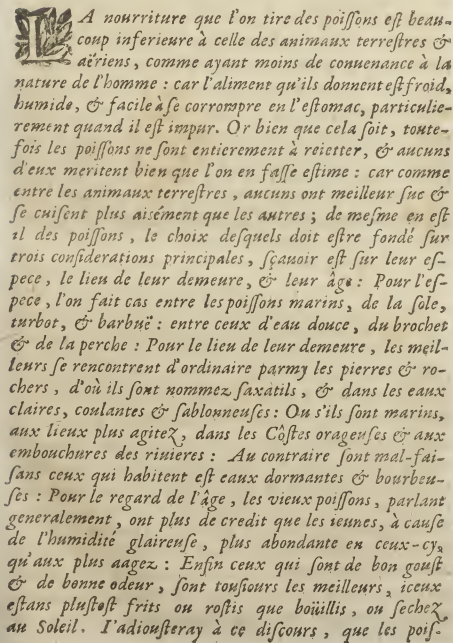 LA nourriture que l'on tire des poissons est beau-
coup inferieure à celle des animaux terrestres &
aëriens, comme ayant moins de conuenance à la
nature de l'homme : car l'aliment qu'ils donnent est froid,
humide, & facile à se corrompre en l'estomac, particulie-
rement quand il est impur. Or bien que cela soit, toute-
fois les poissons ne sont entierement à reietter, & aucuns
d'eux meritent bien que l'on en fasse estime : car comme
entre les animaux terrestres, aucuns ont meilleur suc &
se cuisent plus aisément que les autres ; de mesme en est
il des poissons, le choix desquels doit estre fondé sur
trois considerations principales, sçauoir est sur leur es-
pece, le lieu de leur demeure, & leur âge : Pour l'es-
pece, l'on fait cas entre les poissons marins, de la sole,
turbot, & barbuë : entre ceux d'eau douce, du brochet
& de la perche : Pour le lieu de leur demeure, les meil-
leurs se rencontrent d'ordinaire parmy les pierres & ro-
chers, d'où ils sont nommez saxatils, & dans les eaux
claires, coulantes & sablonneuses : Ou s'ils sont marins,
aux lieux plus agitez, dans les Côstes orageuses & aux
embouchures des riuieres : Au contraire sont mal-fai-
sans ceux qui habitent es eaux dormantes & bourbeu-
ses : Pour le regard de l'âge, les vieux poissons, parlant
generalement, ont plus de credit que les ieunes, à cause
de l'humidité glaireuse, plus abondante en ceux-cy,
qu'aux plus aagez : Enfin ceux qui sont de bon goust
& de bonne odeur, sont tousiours les meilleurs, iceux
estans plustost frits ou rostis que boüillis, ou sechez
au Soleil. I'adiousteray à ce discours, que les pois-